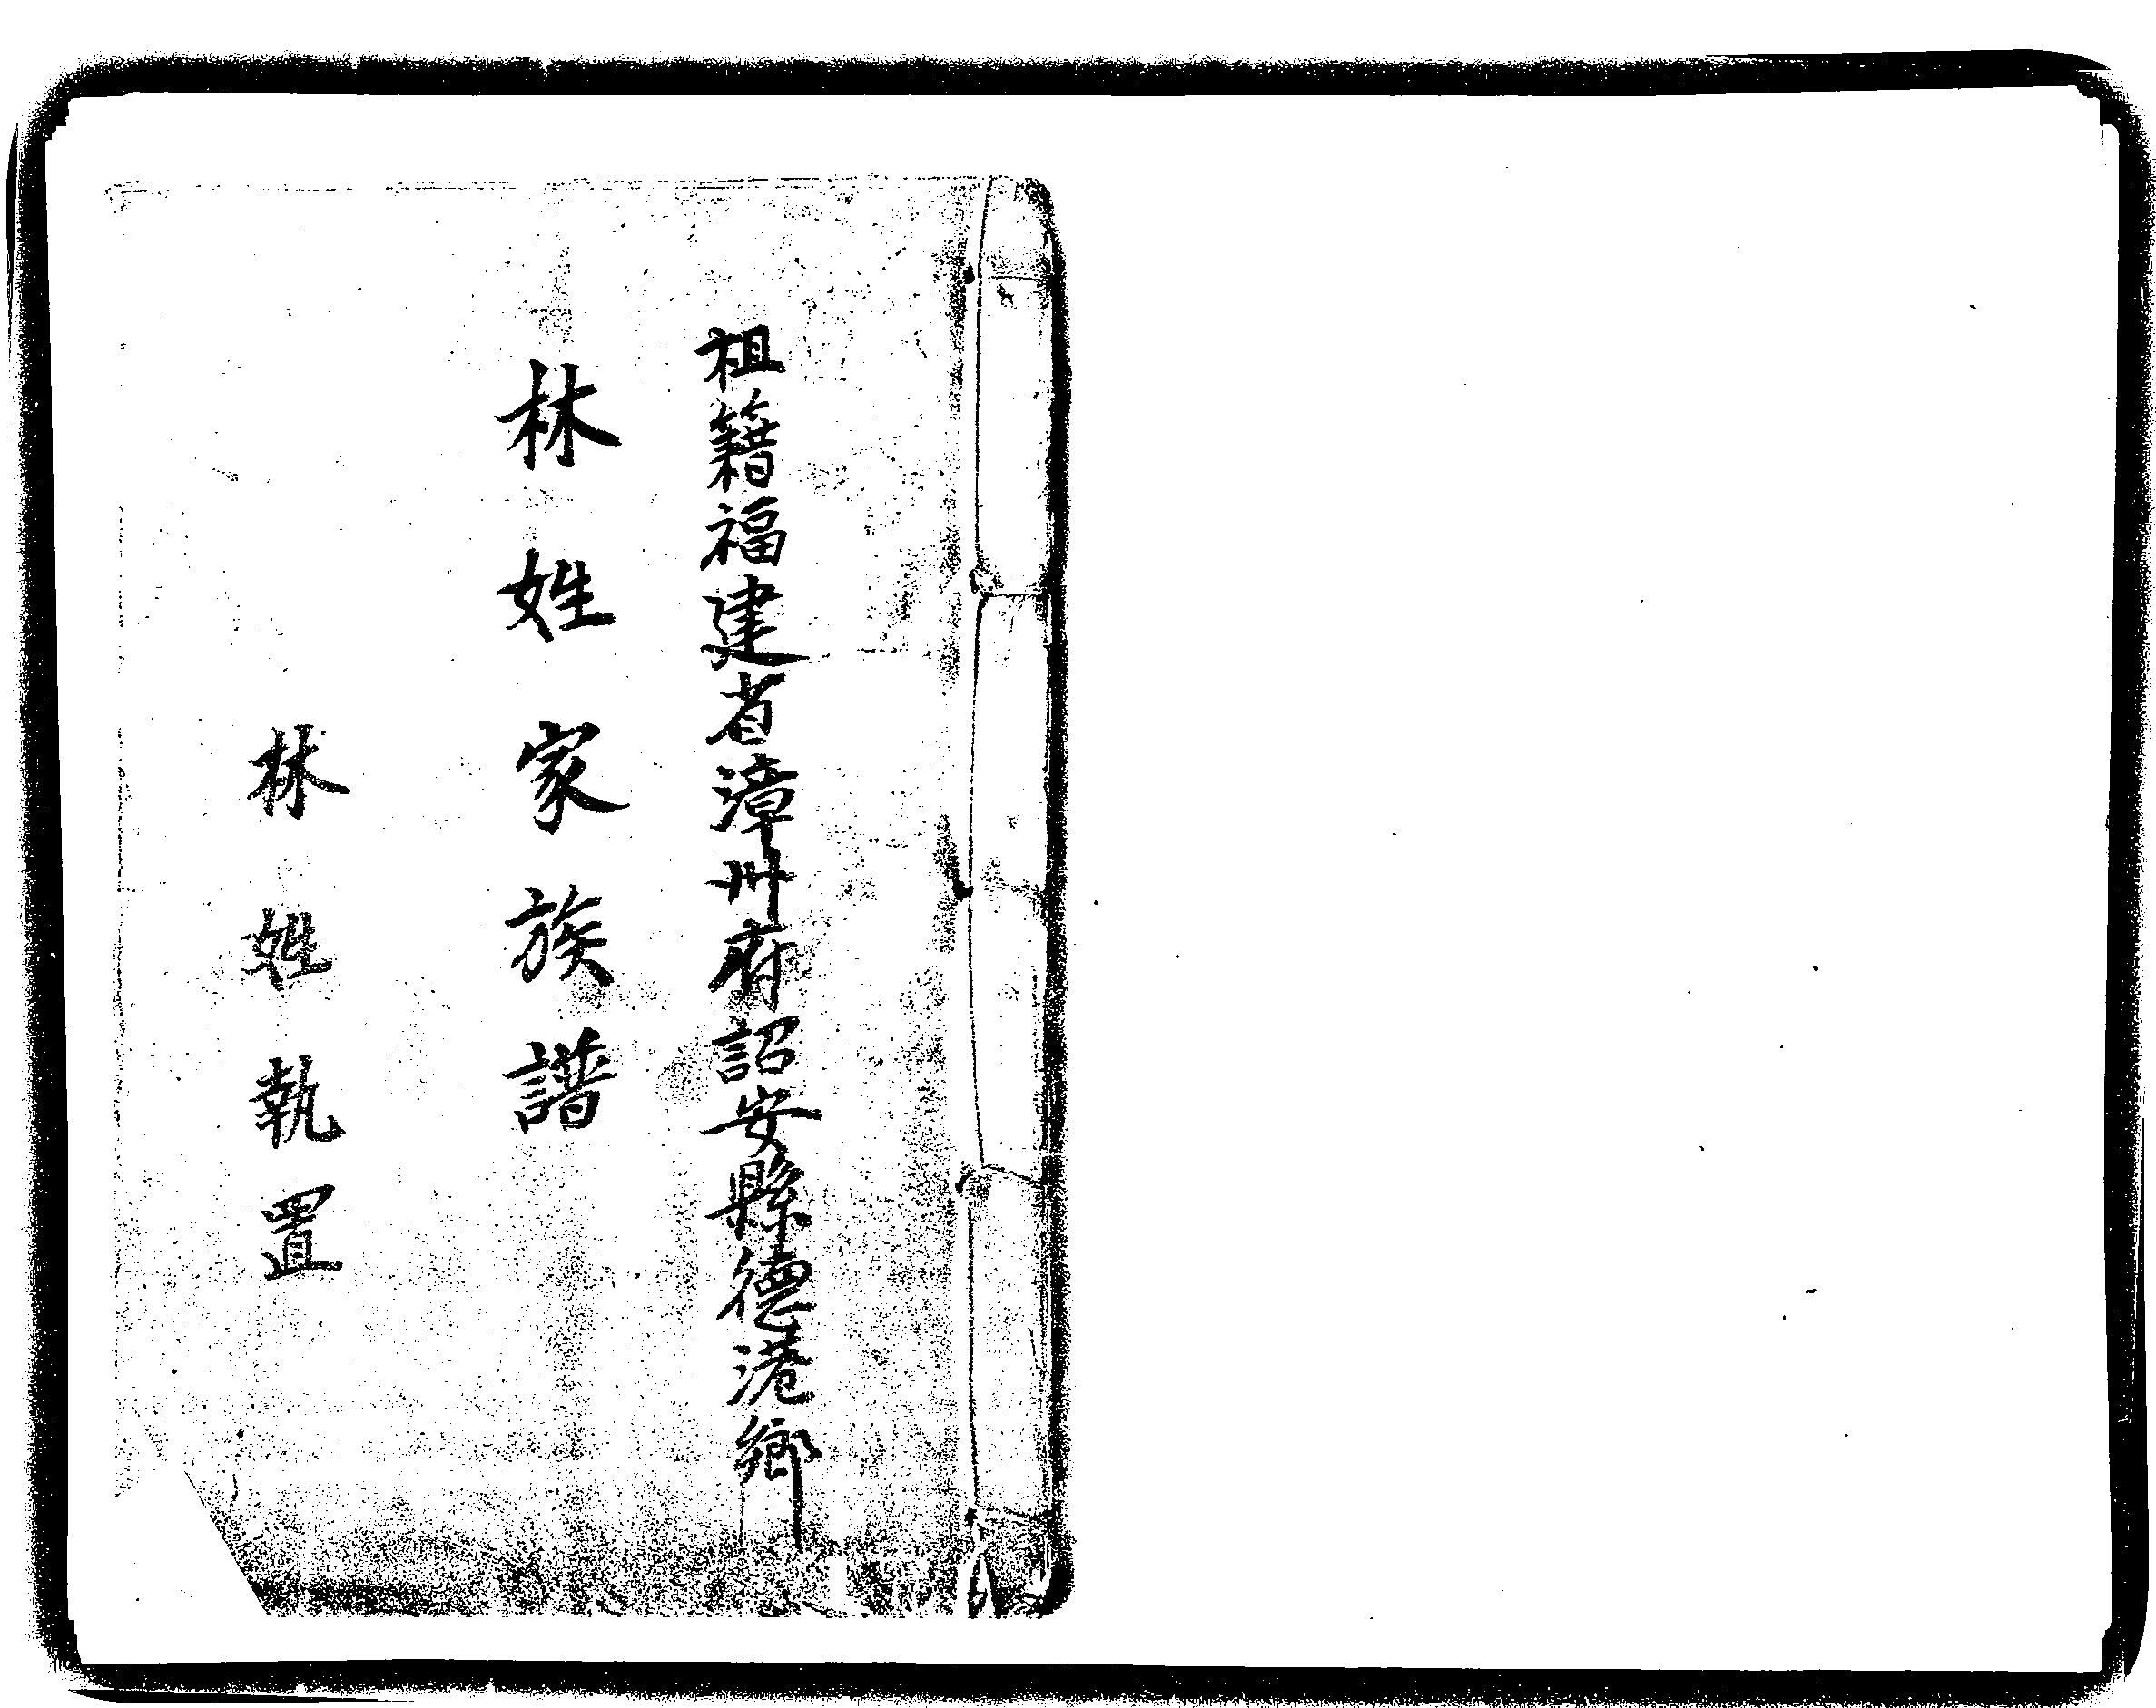 祖籍福建省漳州府詔安縣德港鄉
林姓家族譜
林姓執置